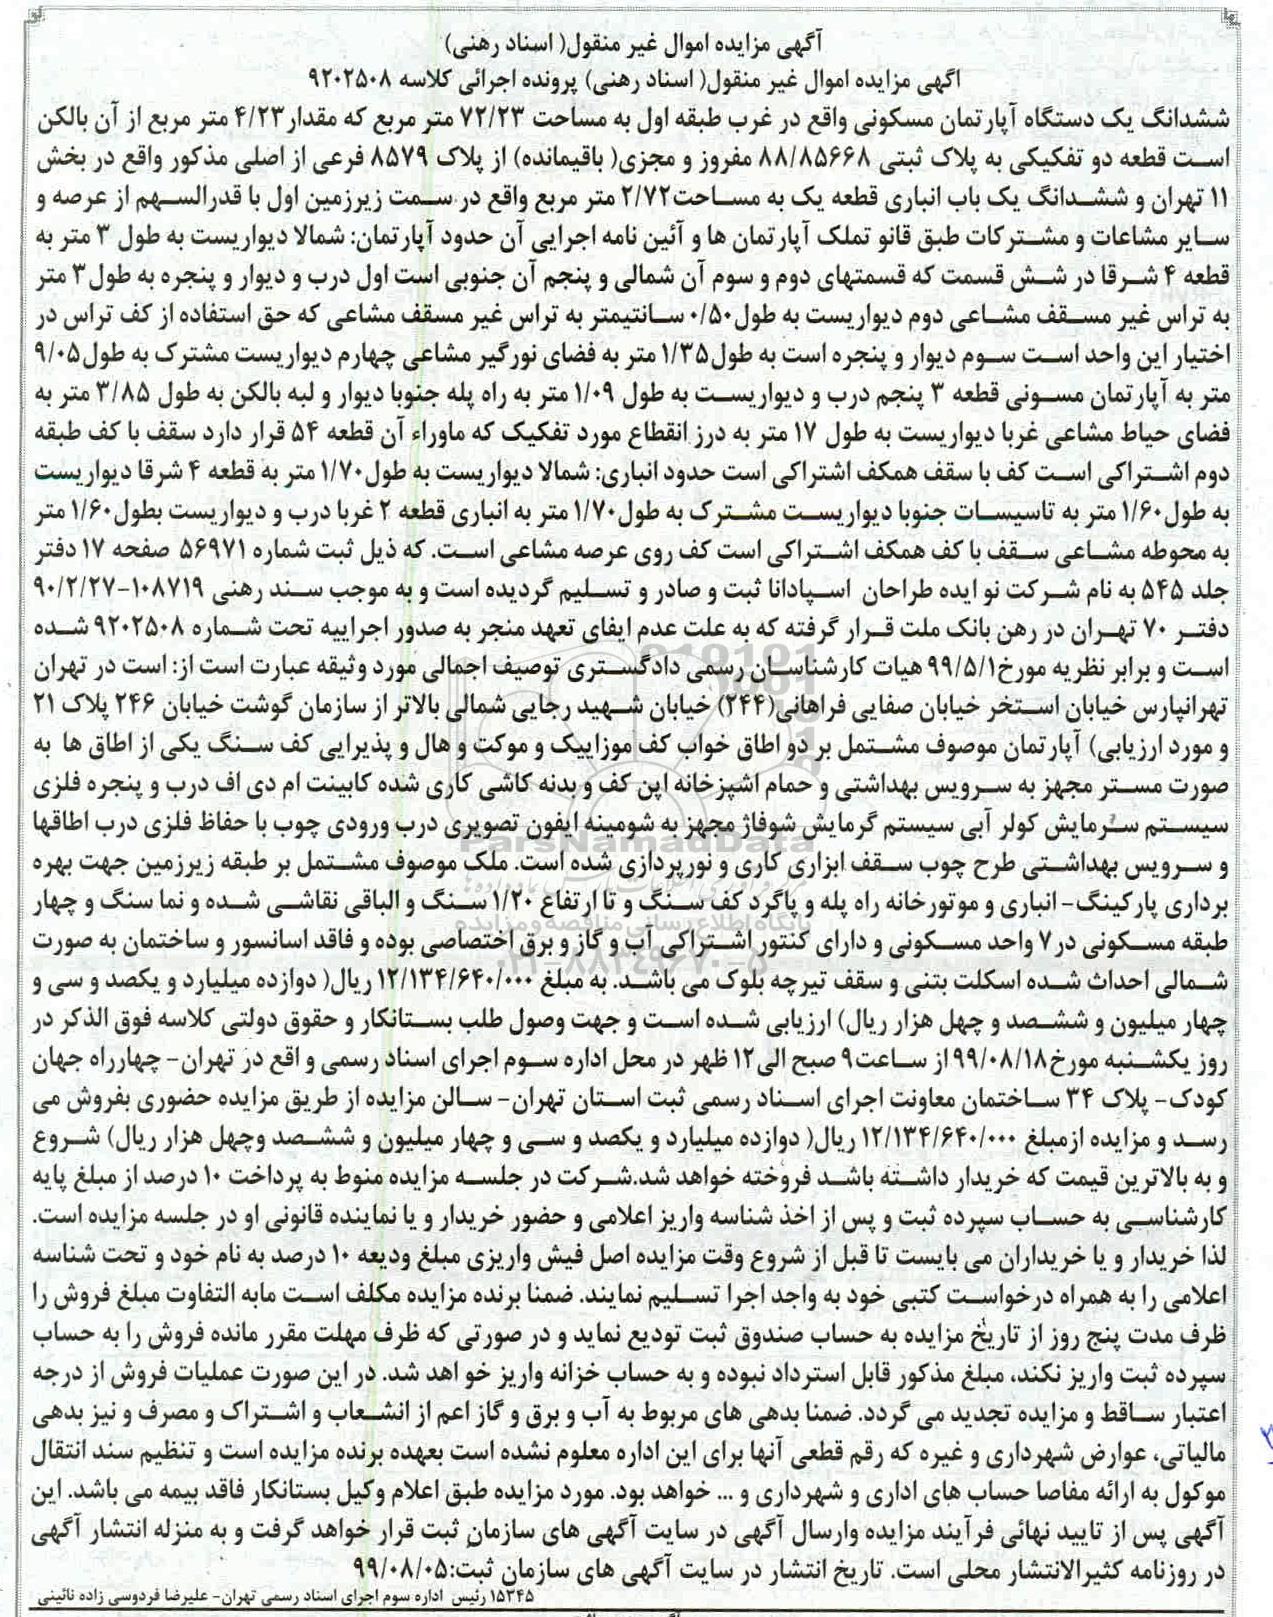 آگهی مزایده اموال غیر منقول( اسناد رهنی)
اگهی مزایده اموال غیر منقول( اسناد رهنی) پرونده اجرائی کلاسه ۹۲۰۲۵۰۸
ششدانگ یک دستگاه آپارتمان مسکونی واقع در غرب طبقه اول به مساحت ۷۲/۲۳ متر مربع که مقدار۴/۲۳ متر مربع از آن بالکن
است قطعه دو تفکیکی به پلاک ثبتی ۸۸/۸۵۶۶۸ مفروز و مجزی( باقیمانده) از پلاک ۸۵۷۹ فرعی از اصلی مذکور واقع در بخش
۱۱ تهران و ششدانگ یک باب انباری قطعه یک به مساحت۲/۷۲ متر مربع واقع در سمت زیرزمین اول با قدرالسهم از عرصه و
سایر مشاعات و مشترکات طبق قانو تملک آپارتمان ها و آئین نامه اجرایی آن حدود آپارتمان: شمالا دیواریست به طول ۳ متر به
قطعه ۴ شرقا در شش قسمت که قسمتهای دوم و سوم آن شمالی و پنجم آن جنوبی است اول درب و دیوار و پنجره به طول۳ متر
به تراس غیر مسقف مشاعی دوم دیواریست به طول۰/۵۰ سانتیمتر به تراس غیر مسقف مشاعی که حق استفاده از کف تراس در
اختیار این واحد است سوم دیوار و پنجره است به طول۱/۳۵ متر به فضای نورگیر مشاعی چهارم دیواریست مشترک به طول۹/۰۵
متر به آپارتمان مسونی قطعه ۳ پنجم درب و دیواریست به طول ۱/۰۹ متر به راه پله جنوبا دیوار و لبه بالکن به طول ۳/۸۵ متر به
فضای حیاط مشاعی غربا دیواریست به طول ۱۷ متر به درز انقطاع مورد تفکیک که ماوراء آن قطعه ۵۴ قرار دارد سقف با کف طبقه
دوم اشتراکی است کف با سقف همکف اشتراکی است حدود انباری: شمالا دیواریست به طول۱/۷۰ متر به قطعه ۴ شرقا دیواریست
به طول۱/۶۰ متر به تاسیسات جنوبا دیواریست مشترک به طول۱/۷۰ متر به انباری قطعه ۲ غربا درب و دیواریست بطول۱/۶۰ متر
به محوطه مشاعی سقف با کف همکف اشتراکی است کف روی عرصه مشاعی است. که ذیل ثبت شماره ۵۶۹۷۱ صفحه ۱۷ دفتر
جلد ۵۴۵ به نام شرکت نو ایده طراحان اسپادانا ثبت و صادر و تسلیم گردیده است و به موجب سند رهنی ۱۰۸۷۱۹-۹۰/۲/۲۷
دفتر ۷۰ تهران در رهن بانک ملت قرار گرفته که به علت عدم ایفای تعهد منجر به صدور اجراییه تحت شماره ۹۲۰۲۵۰۸ شده
است و برابر نظریه مورخ۹۹/۵/۱ هیات کارشناسان رسمی دادگستری توصیف اجمالی مورد وثیقه عبارت است از: است در تهران
تهرانپارس خیابان استخر خیابان صفایی فراهانی(۲۴۴) خیابان شهید رجایی شمالی بالاتر از سازمان گوشت خیابان ۲۴۶ پلاک ۲۱
و مورد ارزیابی) آپارتمان موصوف مشتمل بر دو اطاق خواب کف موزاییک و موکت و هال و پذیرایی کف سنگ یکی از اطاق ها به
صورت مستر مجهز به سرویس بهداشتی و حمام اشپزخانه اپن کف و بدنه کاشی کاری شده کابینت ام دی اف درب و پنجره فلزی
سیستم سرمایش کولر آبی سیستم گرمایش شوفاژ مجهز به شومینه ایفون تصویری درب ورودی چوب با حفاظ فلزی درب اطاقها
و سرویس بهداشتی طرح چوب سقف ابزاری کاری و نورپردازی شده است. ملک موصوف مشتمل بر طبقه زیرزمین جهت بهره
برداری پارکینگ- انباری و موتورخانه راه پله و پاگرد کف سنگ و تا ارتفاع ۱/۲۰ سنگ و الباقی نقاشی شده و نما سنگ و چهار
طبقه مسکونی در۷ واحد مسکونی و دارای کنتور اشتراکی آب و گاز و برق اختصاصی بوده و فاقد اسانسور و ساختمان به صورت
شمالی احداث شده اسکلت بتنی و سقف تیرچه بلوک می باشد. به مبلغ ۱۲/۱۳۴/۶۴۰/۰۰۰ ریال( دوازده میلیارد و یکصد و سی و
چهار میلیون و ششصد و چهل هزار ریال) ارزیابی شده است و جهت وصول طلب بستانکار و حقوق دولتی کلاسه فوق الذکر در
روز یکشنبه مورخ۹۹/۰۸/۱۸ از ساعت۹ صبح الی۱۲ ظهر در محل اداره سوم اجرای اسناد رسمی و اقع در تهران- چهارراه جهان
کودک- پلاک ۳۴ ساختمان معاونت اجرای اسناد رسمی ثبت استان تهران- سالن مزایده از طریق مزایده حضوری بفروش می
رسد و مزایده ازمبلغ ۱۲/۱۳۴/۶۴۰/۰۰۰ ریال( دوازده میلیارد و یکصد و سی و چهار میلیون و ششصد وچهل هزار ریال) شروع
و به بالاترین قیمت که خریدار داشته باشد فروخته خواهد شد.شرکت در جلسه مزایده منوط به پرداخت ۱۰ درصد از مبلغ پایه
کارشناسی به حساب سپرده ثبت و پس از اخذ شناسه واریز اعلامی و حضور خریدار و یا نماینده قانونی او در جلسه مزایده است.
لذا خریدار و یا خریداران می بایست تا قبل از شروع وقت مزایده اصل فیش واریزی مبلغ ودیعه ۱۰ درصد به نام خود و تحت شناسه
اعلامی را به همراه درخواست کتبی خود به واجد اجرا تسلیم نمایند. ضمنا برنده مزایده مکلف است مابه التفاوت مبلغ فروش را
ظرف مدت پنج روز از تاریخ مزایده به حساب صندوق ثبت تودیع نماید و در صورتی که ظرف مهلت مقرر مانده فروش را به حساب
سپرده ثبت واریز نکند، مبلغ مذکور قابل استرداد نبوده و به حساب خزانه واریز خو اهد شد. در این صورت عملیات فروش از درجه
اعتبار ساقط و مزایده تجدید می گردد. ضمنا بدهی های مربوط به آب و برق و گاز اعم از انشعاب و اشتراک و مصرف و نیز بدهی
مالیاتی، عوارض شهرداری و غیره که رقم قطعی آنها برای این اداره معلوم نشده است بعهده برنده مزایده است و تنظیم سند انتقال
موکول به ارائه مفاصا حساب های اداری و شهرداری و ... خواهد بود. مورد مزایده طبق اعلام وکیل بستانکار فاقد بیمه می باشد. این
آگهی پس از تایید نهائی فرآیند مزایده وارسال آگهی در سایت آگهی های سازمان ثبت قرار خواهد گرفت و به منزله انتشار آگهی
در روزنامه کثیرالانتشار محلی است. تاریخ انتشار در سایت آگهی های سازمان ثبت:۹۹/۰۸/۰۵
۱۵۳۴۵ رئیس اداره سوم اجرای اسناد رسمی تهران- علیرضا فردوسی زاده نائینی
ParsNamadData
پایگاه اطلاع رسانی مناقصه و مزایده
۰۲۱-۸۸۳۴۹۶۷۰-۵